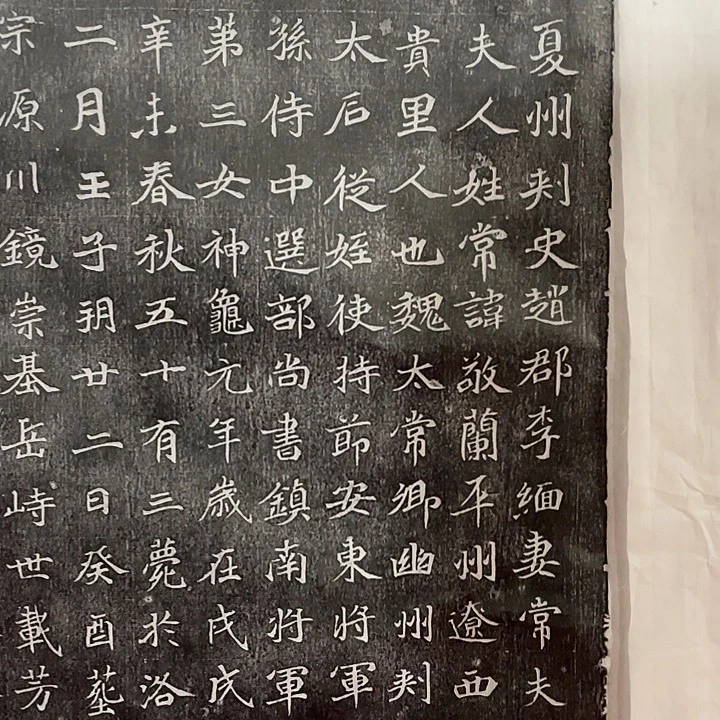 夏州刾史趙郡李緬妻常夫
夫人姓常諱敬蘭平州遼西
貴里人也魏太常卿幽州刾
太后從姪使持節安東將軍
孫侍中選部尚書鎮南將軍
苐三女神龜元年歲在戊戌
辛未春秋五十有三薨於洛
二月壬子朔廿二日癸酉塟
宗原川鏡崇基岳峙世載芳